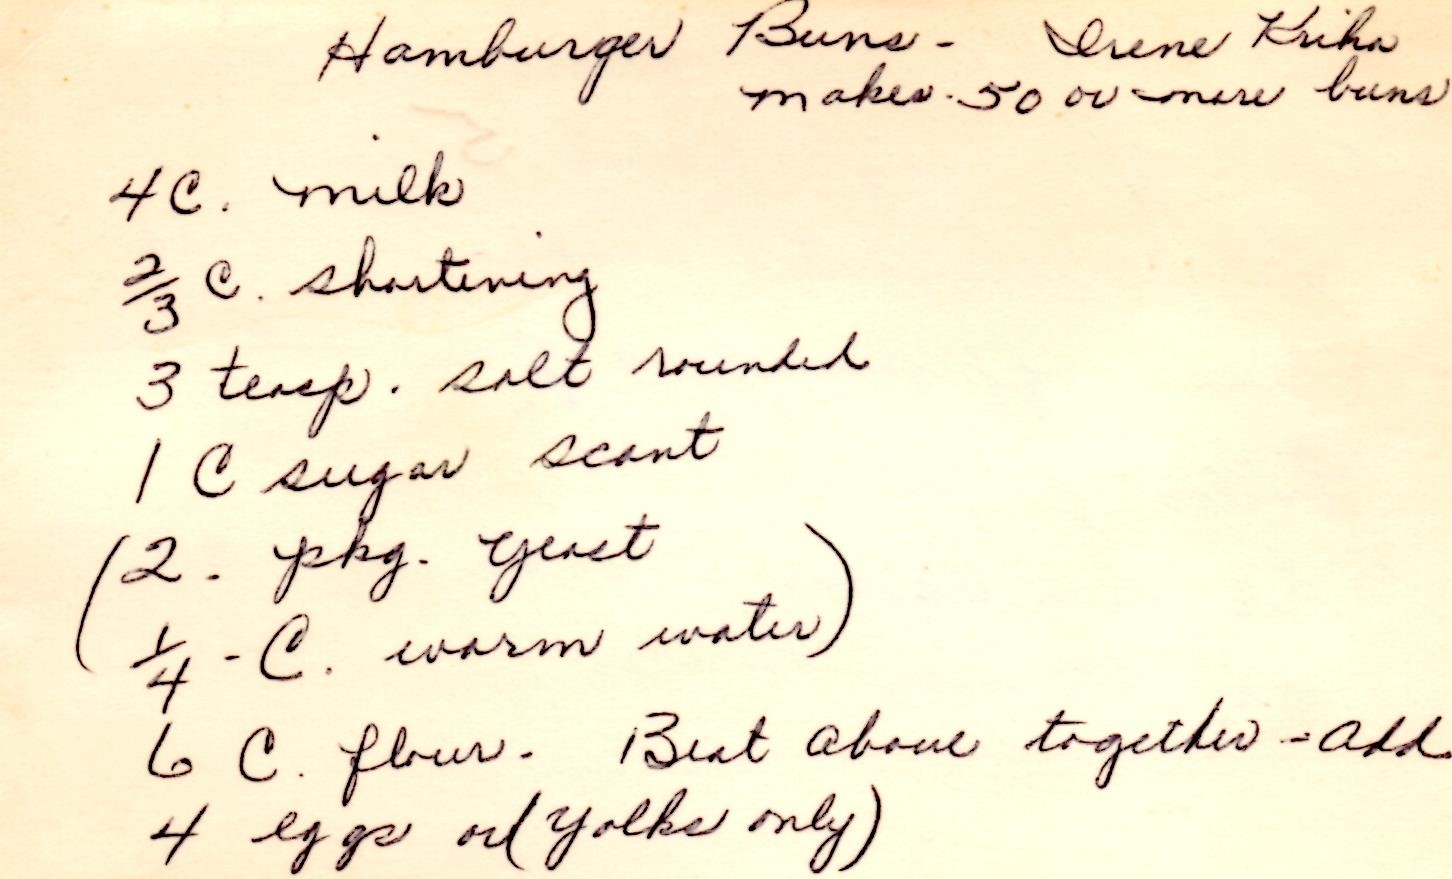 Hamburger Buns - Irene Kriha
makes 50 or more buns
4 C. milk
2/3 C. shortening
3 teasp. salt rounded
1 C sugar scant
(2. pkg. yeast
1/4 - C. warm water)
6 C. flour. Beat above together - add
4 eggs or (yolks only)